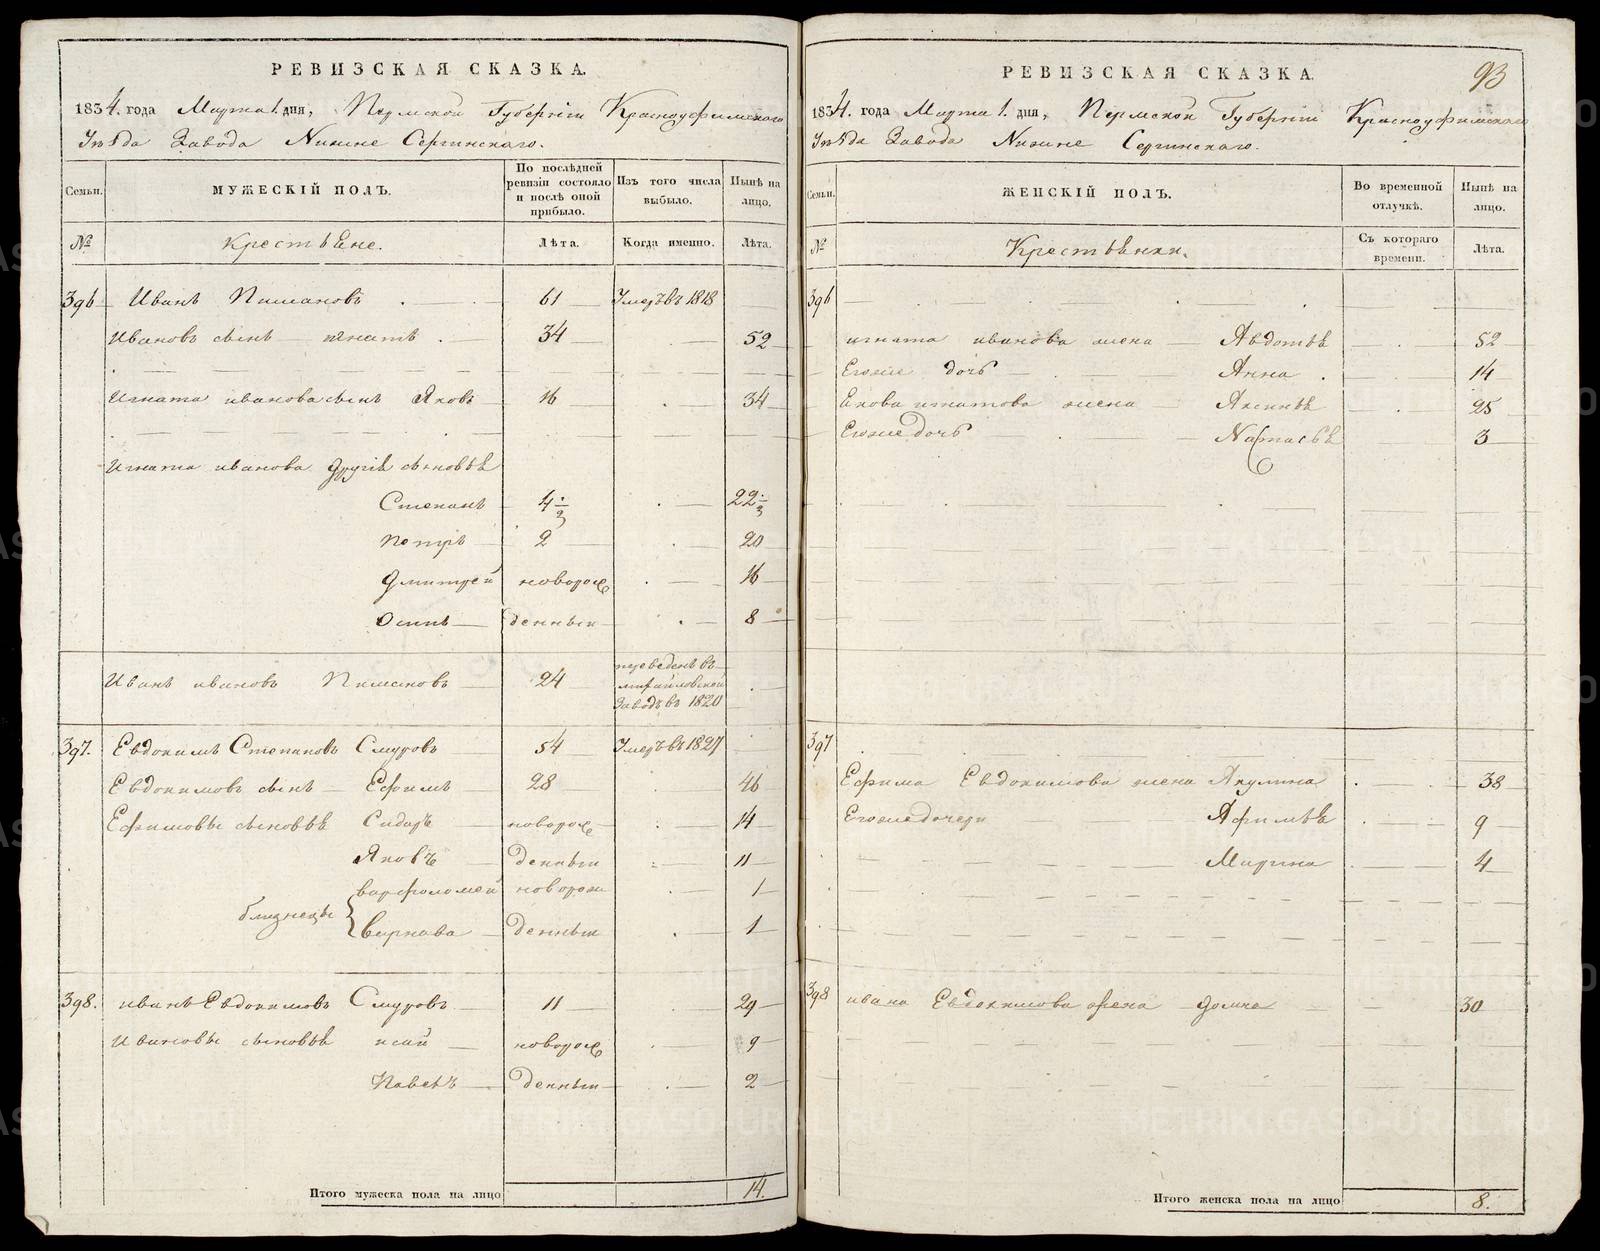 РЕВИЗСКАЯ СКАЗКА.
1834. года Марта 1. дня, Пермской Губернiи Красноуфимскаго
Уѣзда Завода Нижне Сергинскаго.
Семьи. МУЖЕСКIЙ ПОЛЪ. По послѣдней ревизiи состояло и послѣ оной прибыло. Изъ того числа выбыло. Нынѣ на лицо.
№ Крестьяне. Лѣта. Когда именно. Лѣта.
396 Иванъ Пимановъ 61 Умеръ въ 1818
Ивановъ сынъ игнатъ 34 52
Игната иванова сынъ Яковъ 16 34
Игната иванова другiе сыновья
Степанъ 4 1/2 22 1/2
Петръ 2 20
Дмитрей новорож 16
Осипъ денныи 8
Иванъ ивановъ Пимановъ 24 переведенъ въ
михайловской
Заводъ въ 1820
397. Евдокимъ Степановъ Смуровъ 54 Умеръ въ 1827
Евдокимовъ сынъ Ефимъ 28 46
Ефимовы сыновья Сидаръ новорож 14
Яковъ денныи 11
близнецы варфоломей новорож 1
варнава денныи 1
398. иванъ Евдокимовъ Смуровъ 11 29
Ивановы сыновья исай новорож 9
Павелъ денныи 2
Итого мужеска пола на лицо 14.
93
РЕВИЗСКАЯ СКАЗКА.
1834. года Марта 1. дня, Пермской Губернiи Красноуфимскаго
Уѣзда Завода Нижне Сергинскаго.
Семьи. ЖЕНСКIЙ ПОЛЪ. Во временной отлучкѣ. Нынѣ на лицо.
№ Крестьянки. Съ котораго времени. Лѣта.
396
игната иванова жена Авдотья 52
Егоже дочь Анна 14
Якова игнатова жена Аксинья 25
Егоже дочь Наталья 3
397
Ефима Евдокимова жена Акулина 38
Егоже дочери Афимья 9
Марина 4
398 ивана Евдокимова жена домна 30
Итого женска пола на лицо 8.
METRIKI.GASO-URAL.RU